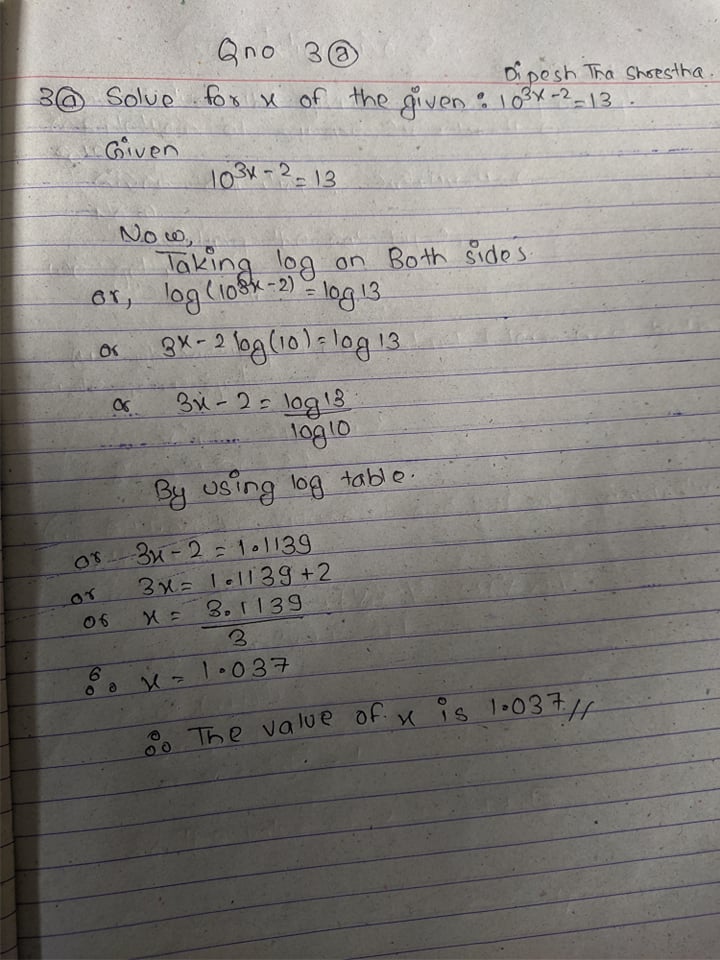 Qno 3 ⓐ
Dipesh Tha Shrestha.
3ⓐ Solve for x of the given : 10^3x-2 = 13 .
Given
10^3x-2 = 13
Now,
Taking log on Both sides.
or, log(10^3x-2) = log 13
or 3x-2 log(10) = log 13
or 3x-2 = log 13
log10
By using log table.
or 3x-2 = 1.1139
or 3x = 1.1139+2
or x = 3.1139
3
∴ x = 1.037
∴ The value of x is 1.037//